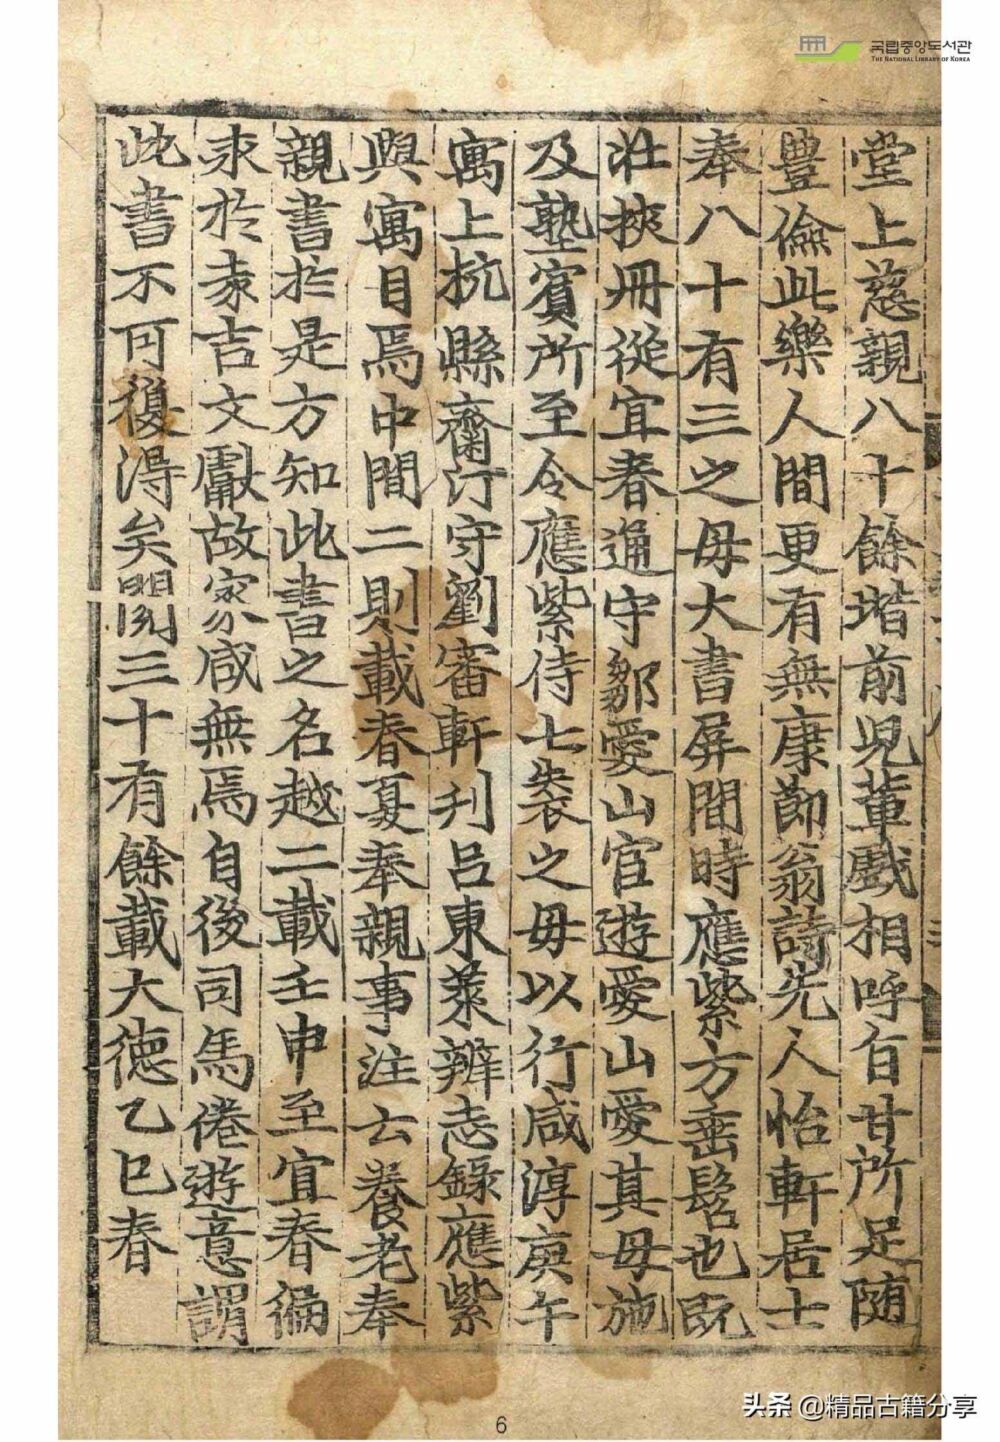 국립중앙도서관
THE NATIONAL LIBRARY OF KOREA
堂上慈親八十餘堦前児軰戯相呼旨甘所足随
豊儉此樂人間更有無康節翁詩先人怡軒居士
奉八十有三之母大書屏間時應紫方垂髫也既
壮挾冊從宜春通守鄒愛山宦遊愛山愛其母施
及塾賓所至令應紫侍七袠之母以行咸淳庚午
寓上杭縣齋汀守劉審軒刋吕東萊辨志錄應紫
與寓目焉中間二則載春夏奉親事注云養老奉
親書於是方知此書之名越二載壬申至宜春徧
求於袁吉文獻故家咸無焉自後司馬倦遊意謂
此書不可復得矣閱三十有餘載大德乙巳春
6
头条 @精品古籍分享